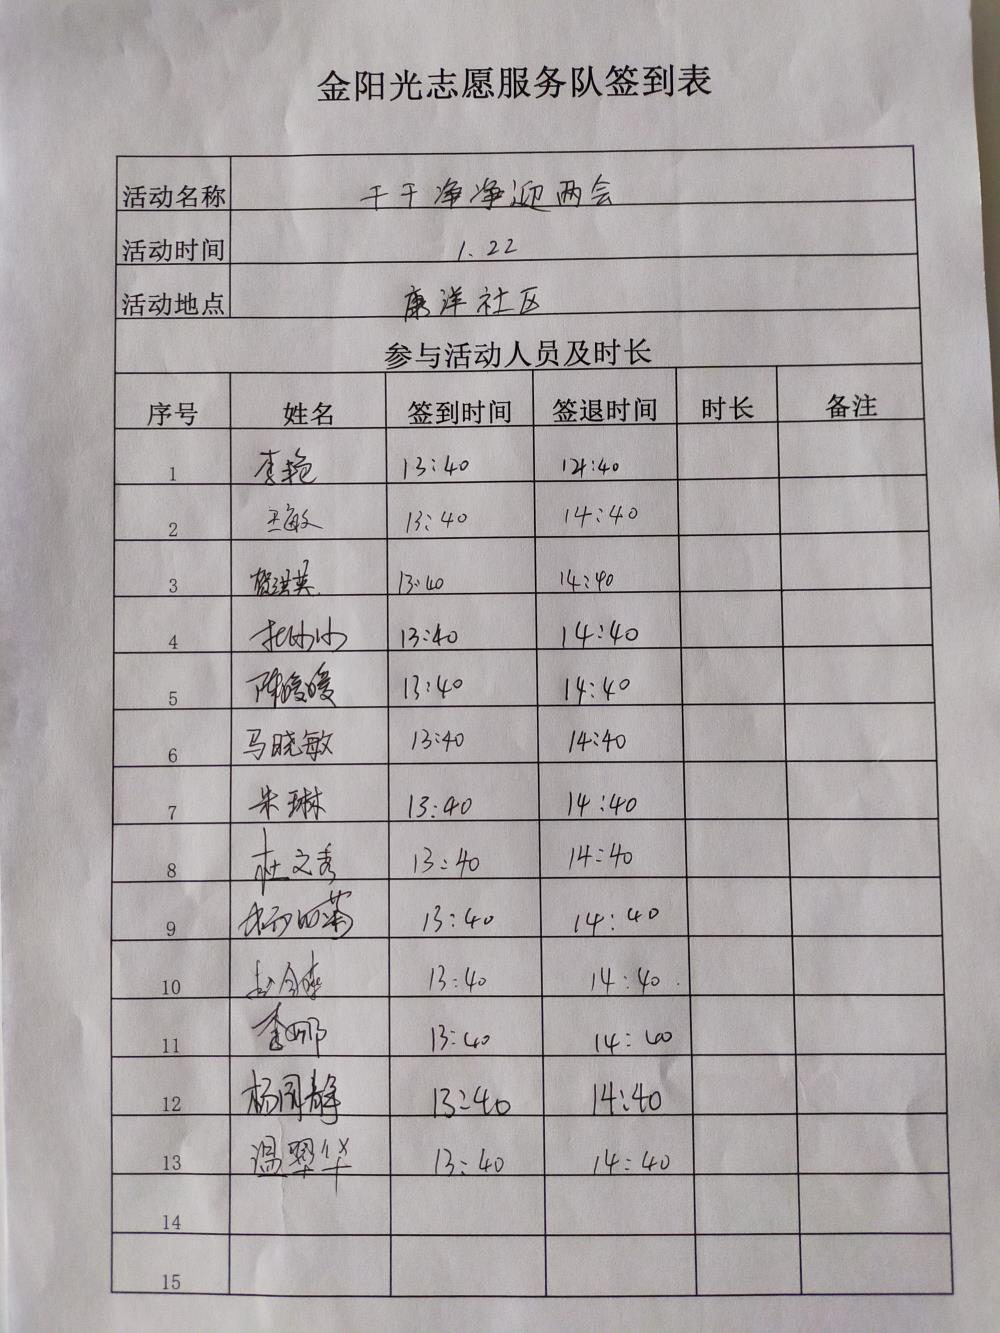 金阳光志愿服务队签到表
活动名称 干干净净迎两会
活动时间 1.22
活动地点 康洋社区
参与活动人员及时长
序号 姓名 签到时间 签退时间 时长 备注
1 李艳 13:40 14:40
2 王敏 13:40 14:40
3 13:40 14:40
4 13:40 14:40
5 陈媛媛 13:40 14:40
6 马晓敏 13:40 14:40
7 朱琳 13:40 14:40
8 杜文秀 13:40 14:40
9 13:40 14:40
10 13:40 14:40
11 李娜 13:40 14:40
12 杨周静 13:40 14:40
13 13:40 14:40
14
15